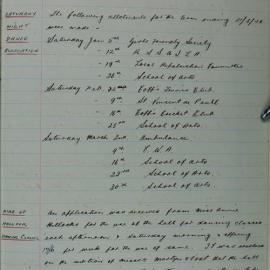 SATURDAY
NIGHT
DANCE
ALLOCATION
The following allotments for the term ending
were made -
Saturday Jan 5th Girls Friendly Society
" 12th R.S.S.I.L.A.
" 19th Local Repatriation Committee
" 26th School of Arts
Saturday Feb 2nd Coffs Tennis Club
" 9th St Vincent de Paul
" 16th Coffs Cricket Club
" 23rd School of Arts
Saturday March 2nd Ambulance
9th C.W.A.
16th School of Arts
23rd School of Arts
30th School of Arts
USE OF
HALL FOR
DANCING CLASSES
An application was received from Miss
for the use of the hall for dancing classes
each afternoon & Saturday morning & offering
per week for the use of same. It was resolved
on the motion of that the hall